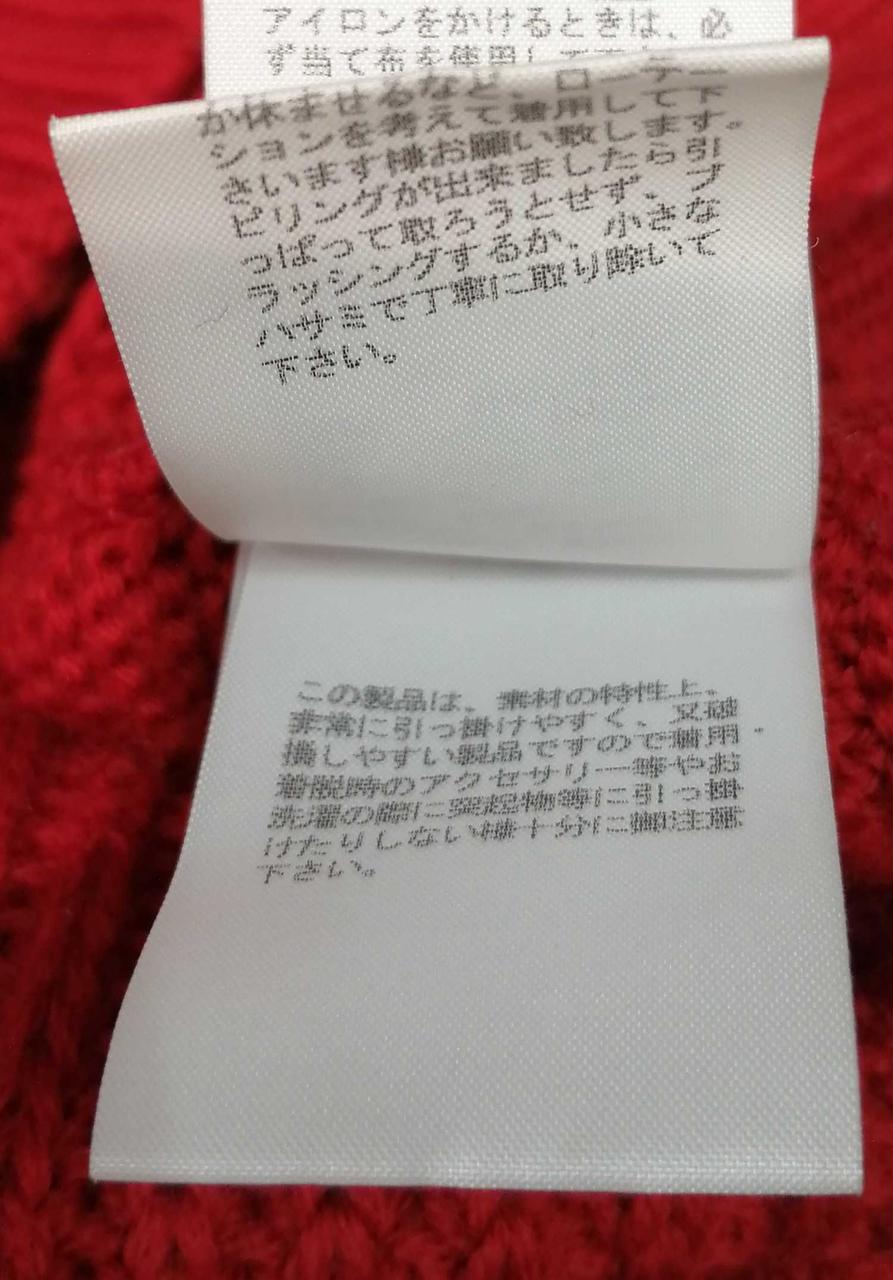 アイロンをかけるときは、必
ず当て布を使用して下
か休ませるなど、着用
ションを考えて着用し
さいます様お願い致します。
ピリングが出来ましたら、引
っぱって取ろうとせず、ブ
ラッシングするか、小さな
ハサミで丁寧に取り除いて
下さい。
この製品は、素材の特性上、
非常に引っ掛けやすく、又破
損しやすい製品ですので着用・
着脱時のアクセサリー等やお
洗濯の際に突起物等に引っ掛
けたりしない様十分に御注意
下さい。